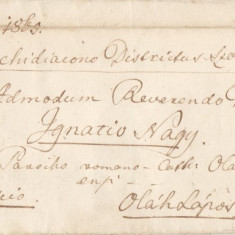 1869.
chidiacono Districtus
Admodum Reverendo
Ignatio Nagy.
Parocho romano-Cath: Olá
enfi-
Oláh Lápos